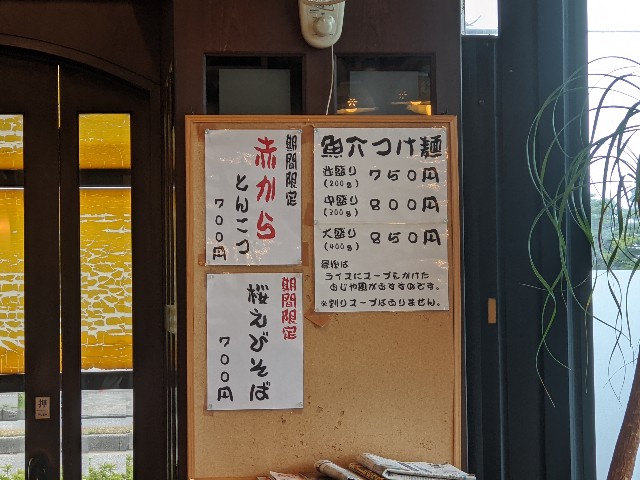 期間限定
赤から
とんこつ
700円
魚介つけ麺
並盛り 750円
(200g)
中盛り 800円
(300g)
大盛り 850円
(400g)
最後は
ライスにスープをかけた
おじや風がおすすめです。
※割りスープはありません。
期間限定
桜えびそば
700円
押